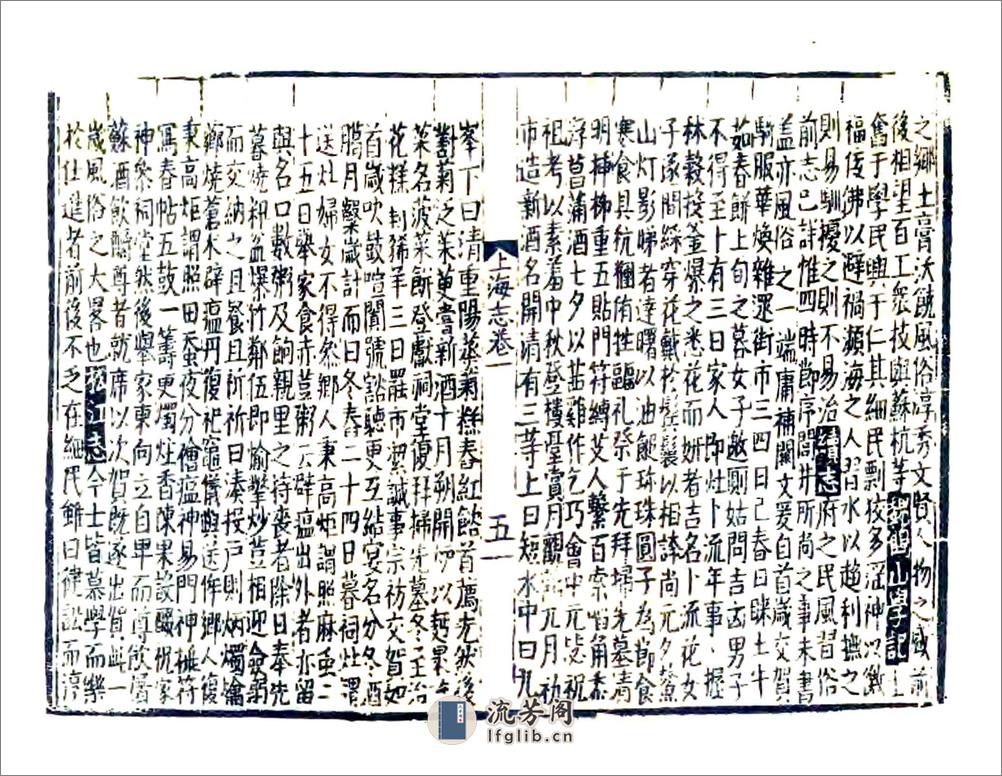 之鄉土膏沃饒風俗淳秀文賢人物之盛前
後相望百工衆技與蘇杭等山學記士
奮于學民興于仁其細民剽佼多淫神以徼
福佞佛以避禍瀕海之人習水以趨利撫之
則易馴擾之則不易治續志府之民風習俗
前志已詳惟四時節序閭井所尚之事未書
盖亦風俗之一端庸補闕文爰自首歲交賀
騎服華煥雜遝街市三四日已春日眯土牛
茹春餅上旬之暮女子邀厠姑問吉凶男子
不得至卜有三日家人即灶卜流年事握
林穀投釜爆之悉花而妍者吉名卜流花女
子琢間綵穿花蛾於髻鬟以相誇尚元夕鰲
山灯影睇者達曙以油䭔珠珠圓子為節食
寒食具侑牲醞礼祭于先拜埽先墓清
明揷柳重五貼門符縛艾人繫百索啗角黍
浮菖蒲酒七夕以茁雞作乞巧會中元毖祝
祖考以素羞中秋登樓臺賞月元月初
市造新酒名開清有三等上曰短水中曰九
上海志卷一
五
峯下曰清重陽蒸菊糕舂紅餡首薦先然後
對菊泛茱更嘗新酒十月朔開炉以麪裹
菜名菠菜餅登獻祠堂復拜掃先墓冬至治
花糕刲豨羊三日罷市潔誠事宗祊交賀如
首歲吹鼓喧闐號謠聽更互結宴名分冬酒
臈月鑿歲計而日冬舂二十四日暮祠灶謂
送灶婦女不得然鄉人秉高炬謂照麻虫二
十五日舉家食赤荳粥云辟瘟出外者亦留
與名口數粥及餉親里之待喪者除日奉先
暮燒籸盆爆竹鄰伍即愉懽炒荳相迎合掬
而交納之且餐且祈祈曰湊投戸則炳燭瀹
鄉燒蒼术辟瘟丹復祀竈儀與送侔鄉人復
秉高炬謂照田蚕夜分儈瘟神易門神換符
寫春帖五鼓一籌更燭炷香陳果設醊悦家
神祭祠堂然後舉家東向立自卑而尊飲屠
蘇酒飲醻尊者就席以次賀既遂出賀此一
歲風俗之大畧也松江志今士皆慕學而樂
於仕進者前後不乏在細民雖曰健訟而淳
流芳阁
lfglib.cn